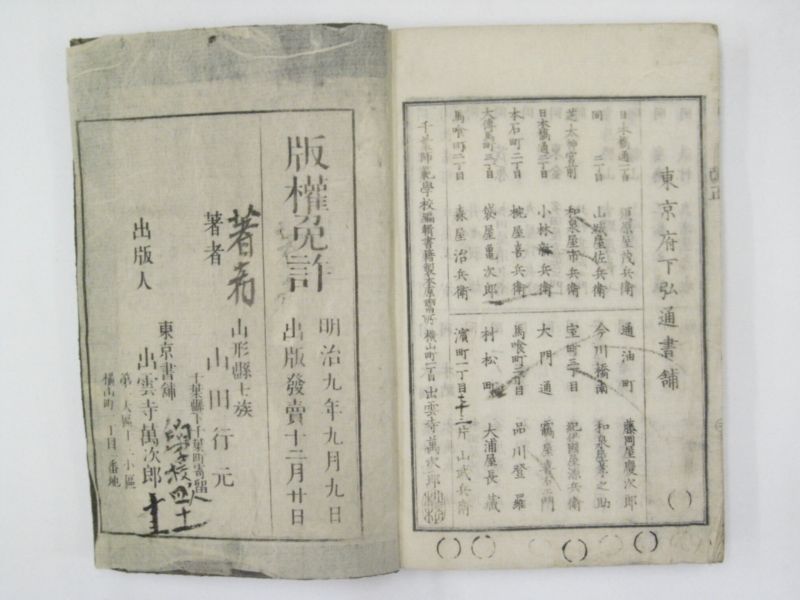 東京府下弘通書舗
日本橋通一丁目 須原屋茂兵衛
同 二丁目 山城屋佐兵衛
芝太神宮前 和泉屋市兵衛
日本橋通二丁目 小林新兵衛
本石町二丁目 椀屋喜兵衛
大傳馬町三丁目 袋屋亀次郎
馬喰町二丁目 森屋治兵衛
通油町 藤岡屋慶次郎
今川橋南 和泉屋
室町三丁目 紀伊國屋源兵衛
大門通
馬喰町三丁目 品川登羅
村松町 大浦屋長蔵
濱町一丁目 片山武兵衛
千葉師範學校編輯書籍製本 横山町三丁目 出雲寺萬次郎
版權免許
明治九年九月九日
出版發賣十二月廿日
著者
山形縣士族
山田行元
千葉縣下千葉町寄留
出版人
東京書舗
出雲寺萬次郎
第一大區十二小區
横山町三丁目二番地